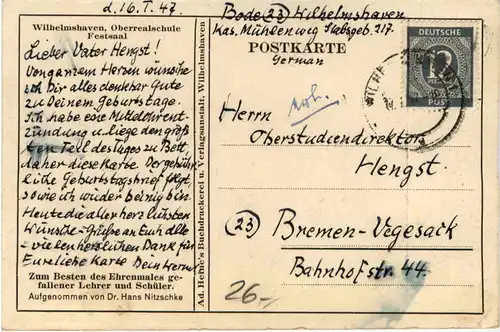 Wilhelmshaven, Oberrealschule
Festsaal
d. 16. I. 47.
Lieber Vater Hengst!
Von ganzem Herzen wünsche
ich Dir alles denkbar Gute
zu Deinem Geburtstage.
Ich habe eine Mittelohrent-
zündung u. liege den größ-
ten Teil des Tages zu Bett,
daher diese Karte. Der gebühr-
liche Geburtstagsbrief folgt,
sowie ich wieder beinig bin.
Heute die allerherzlichsten
Wünsche - Grüße an Euch alle
- vielen herzlichen Dank für
Eure liebe Karte Dein Werner
Zum Besten des Ehrenmales ge-
fallener Lehrer und Schüler.
Aufgenommen von Dr. Hans Nitzschke
Ad. Heine's Buchdruckerei u. Verlagsanstalt, Wilhelmshaven
Bode (23) Wilhelmshaven
Kas. Mühlenweg Stabsgeb. 217.
POSTKARTE
German
DEUTSCHE
12
POST
WILHE
Herrn
Oberstudiendirektor
Hengst
(23) Bremen-Vegesack
Bahnhofstr. 44.
26.-